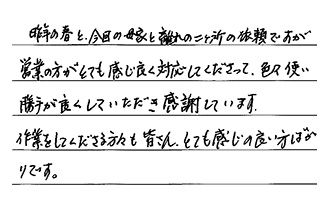 昨年の春と、今回の母家と離れの二ヶ所の依頼ですが
営業の方がとても感じ良く対応してくださって、色々使い
勝手が良くしていただき感謝しています。
作業をしてくださる方々も皆さん、とても感じの良い方ばか
りです。